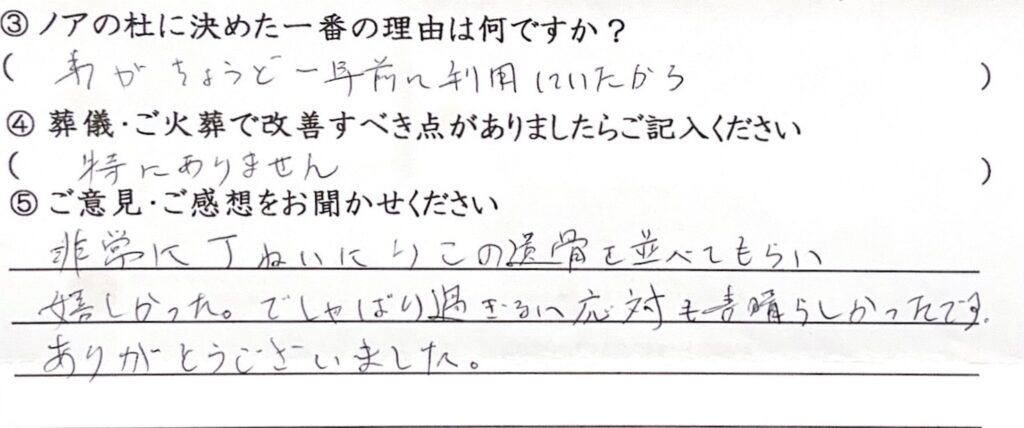 ③ノアの杜に決めた一番の理由は何ですか？
( 弟がちょうど一年前に利用していたから )
④ 葬儀・ご火葬で改善すべき点がありましたらご記入ください
( 特にありません )
⑤ ご意見・ご感想をお聞かせください
非常に丁ねいにりこの遺骨を並べてもらい
嬉しかった。でしゃばり過ぎない応対も素晴らしかったです。
ありがとうございました。